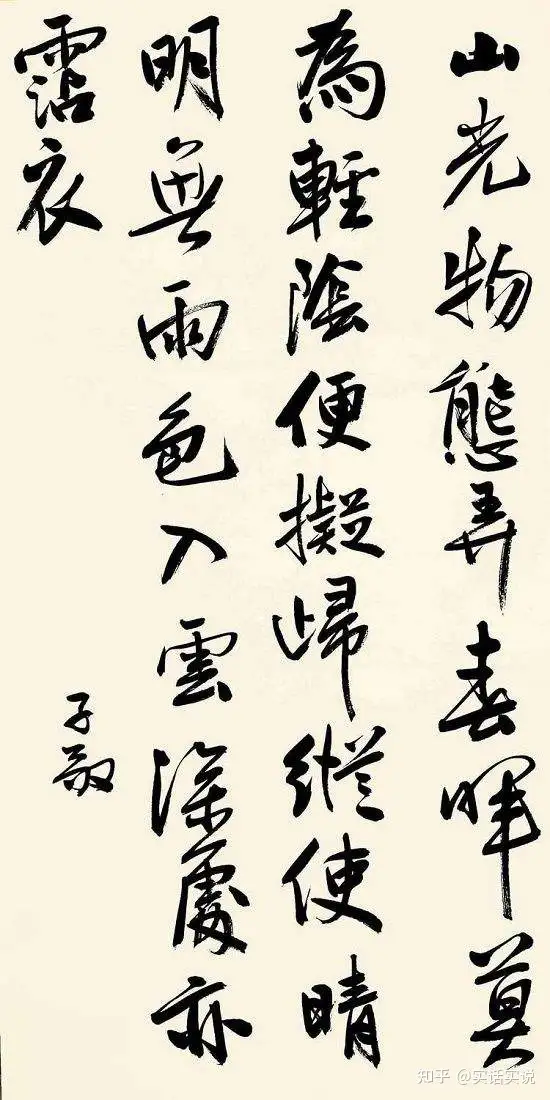 山光物態弄春暉莫
為輕陰便擬歸縱使晴
明無雨色入雲深處亦
霑衣
子敬
知乎 @实话实说